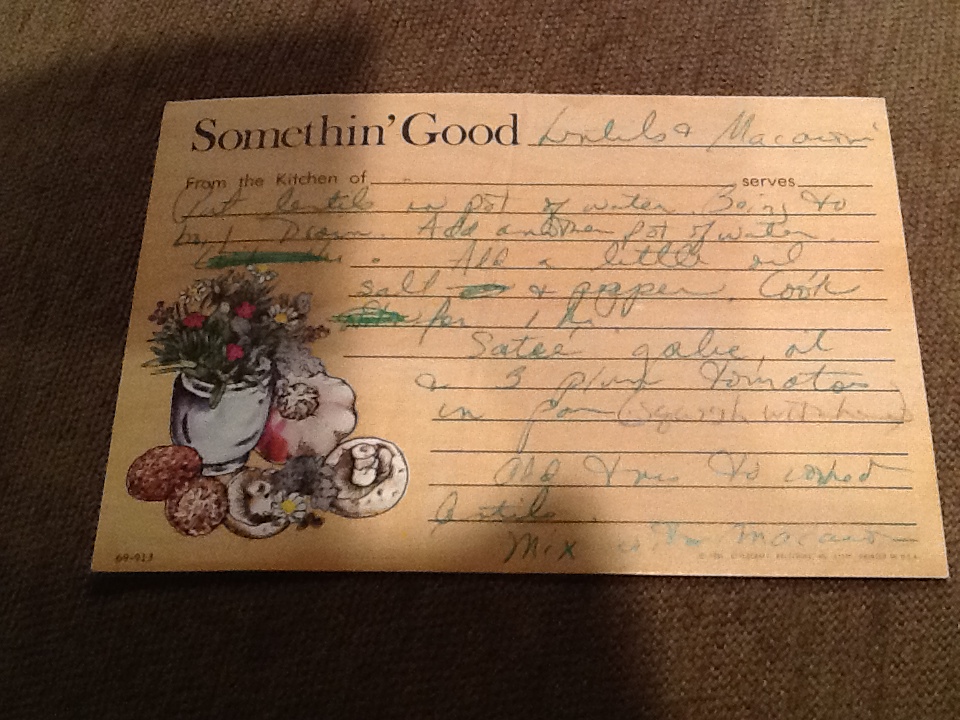 Somethin' Good Lentils & Macaroni
From the Kitchen of serves
Put lentils in pot of water. Bring to
boil Drain. Add another pot of water.
Add a little oil
salt & pepper. Cook
for 1 hr.
Satee galic, oil
& 3 plum tomatoes
in pan (squish with hand)
add this to cooked
lentils.
Mix with macaroni
69-913